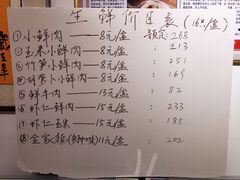 生鲜价目表(16只/盒)
①小鲜肉——8元/盒 热量:268
②玉米小鲜肉——8元/盒 : 213
③竹笋小鲜肉——8元/盒 : 251
④胡萝卜小鲜肉——8元/盒 : 169
⑤鲜牛肉——13元/盒 : 82
⑥虾仁鲜肉——15元/盒 : 233
⑦虾仁玉米——15元/盒 : 185
⑧全家福(多种口味)11元/盒 : 202